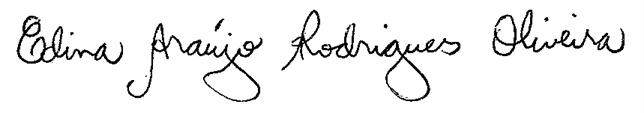 Edina Araújo Rodrigues Oliveira